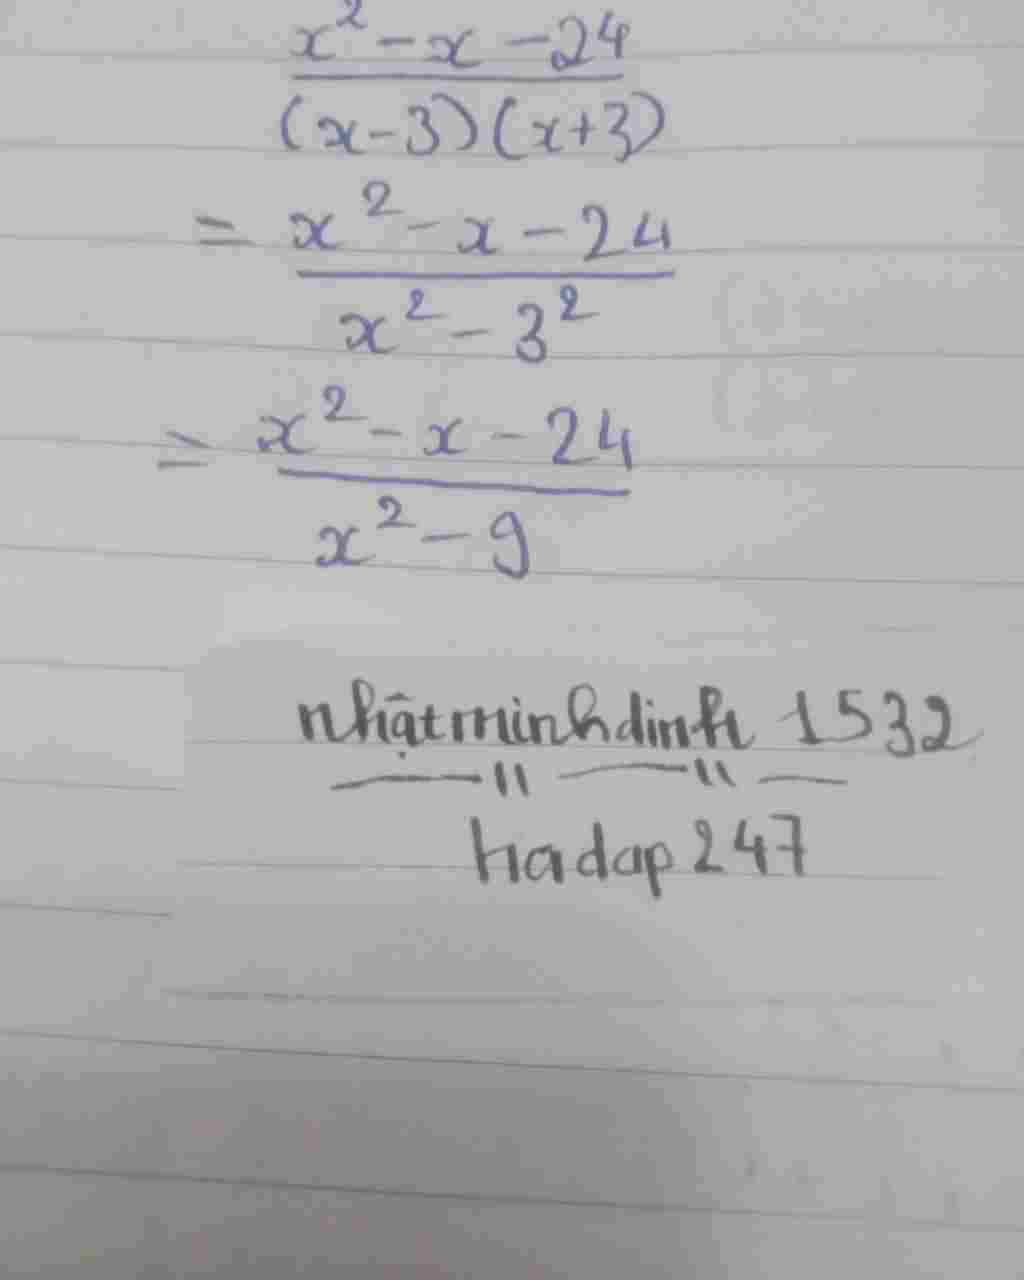 x² - x - 24
(x-3)(x+3)
= x² - x - 24
x² - 3²
= x² - x - 24
x² - 9
nhậtminhdinh 1532
hadap 247